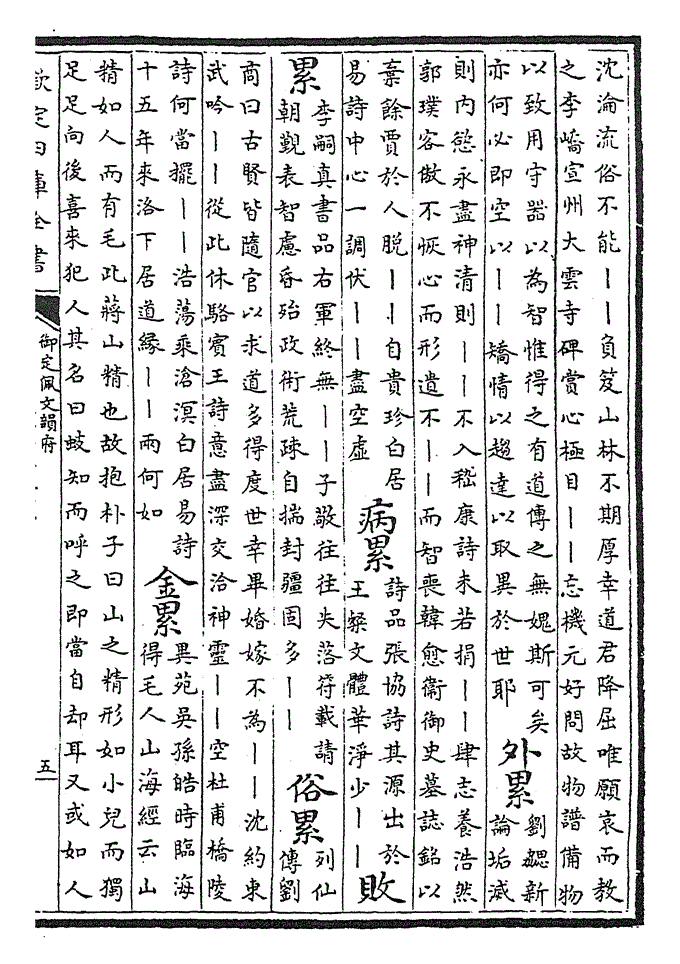 沈淪流俗不能丨丨負笈山林不期厚幸道君降屈唯願哀而教
之李嶠宣州大雲寺碑賞心極目丨丨忘機元好問故物譜備物
以致用守器以為智惟得之有道傳之無媿斯可矣
亦何必即空以丨丨矯情以趨達以取異於世耶
外累
劉勰新
論垢滅
則内慾永盡神清則丨丨不入嵇康詩未若捐丨丨肆志養浩然
郭璞客傲不恢心而形遺不丨丨而智喪韓愈衞御史墓誌銘以
棄餘賈於人脱丨丨自貴珍白居
易詩中心一調伏丨丨盡空虛
病累
詩品張協詩其源出於
王粲文體華淨少丨丨
敗
累
李嗣真書品右軍終無丨丨子敬往往失落符載請
朝覲表智慮昏殆政術荒疎自揣封疆固多丨丨
俗累
列仙
傳劉
商曰古賢皆隨官以求道多得度世幸畢婚嫁不為丨丨沈約東
武吟丨丨從此休駱賓王詩意盡深交洽神靈丨丨空杜甫橋陵
詩何當擺丨丨浩蕩乘滄溟白居易詩
十五年來洛下居道緣丨丨兩何如
金累
異苑吳孫皓時臨海
得毛人山海經云山
精如人而有毛此蔣山精也故抱朴子曰山之精形如小兒而獨
足足向後喜來犯人其名曰蚑知而呼之即當自却耳又或如人
欽定四庫全書
御定佩文韻府
五